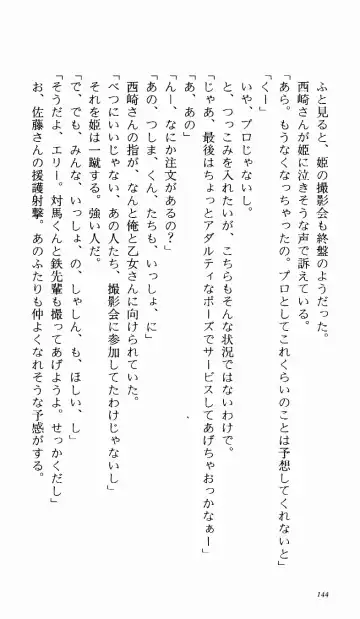 ふと見ると、姫の撮影会も終盤のようだった。
西崎さんが姫に泣きそうな声で訴えている。
「あら。もうなくなっちゃったの。プロとしてこれくらいのことは予想してくれないと」
「くー」
いや、プロじゃないし。
と、つっこみを入れたいが、こちらもそんな状況ではないわけで。
「じゃあ、最後はちょっとアダルティなポーズでサービスしてあげちゃおっかなぁー」
「あ、あの」
「んー、なにか注文があるの？」
「あの、つしま、くん、たちも、いっしょ、に」
西崎さんの指が、なんと俺と乙女さんに向けられていた。
「べつにいいじゃない、あの人たち、撮影会に参加してたわけじゃないし」
それを姫は一蹴する。強い人だ。
「で、でも、みんな、いっしょ、の、しゃしん、も、ほしい、し」
「そうだよ、エリー。対馬くんと鉄先輩も撮ってあげようよ。せっかくだし」
お、佐藤さんの援護射撃。あのふたりも仲よくなれそうな予感がする。
144